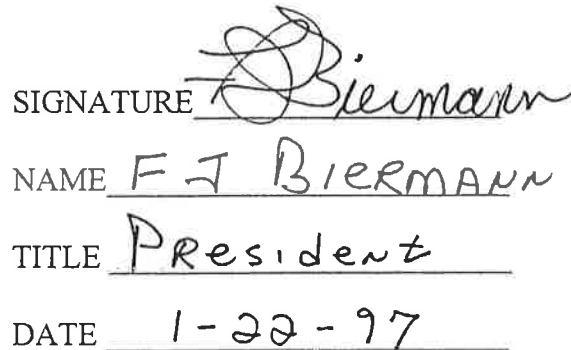 SIGNATURE FJ Biermann
NAME F J BIERMANN
TITLE President
DATE 1-22-97